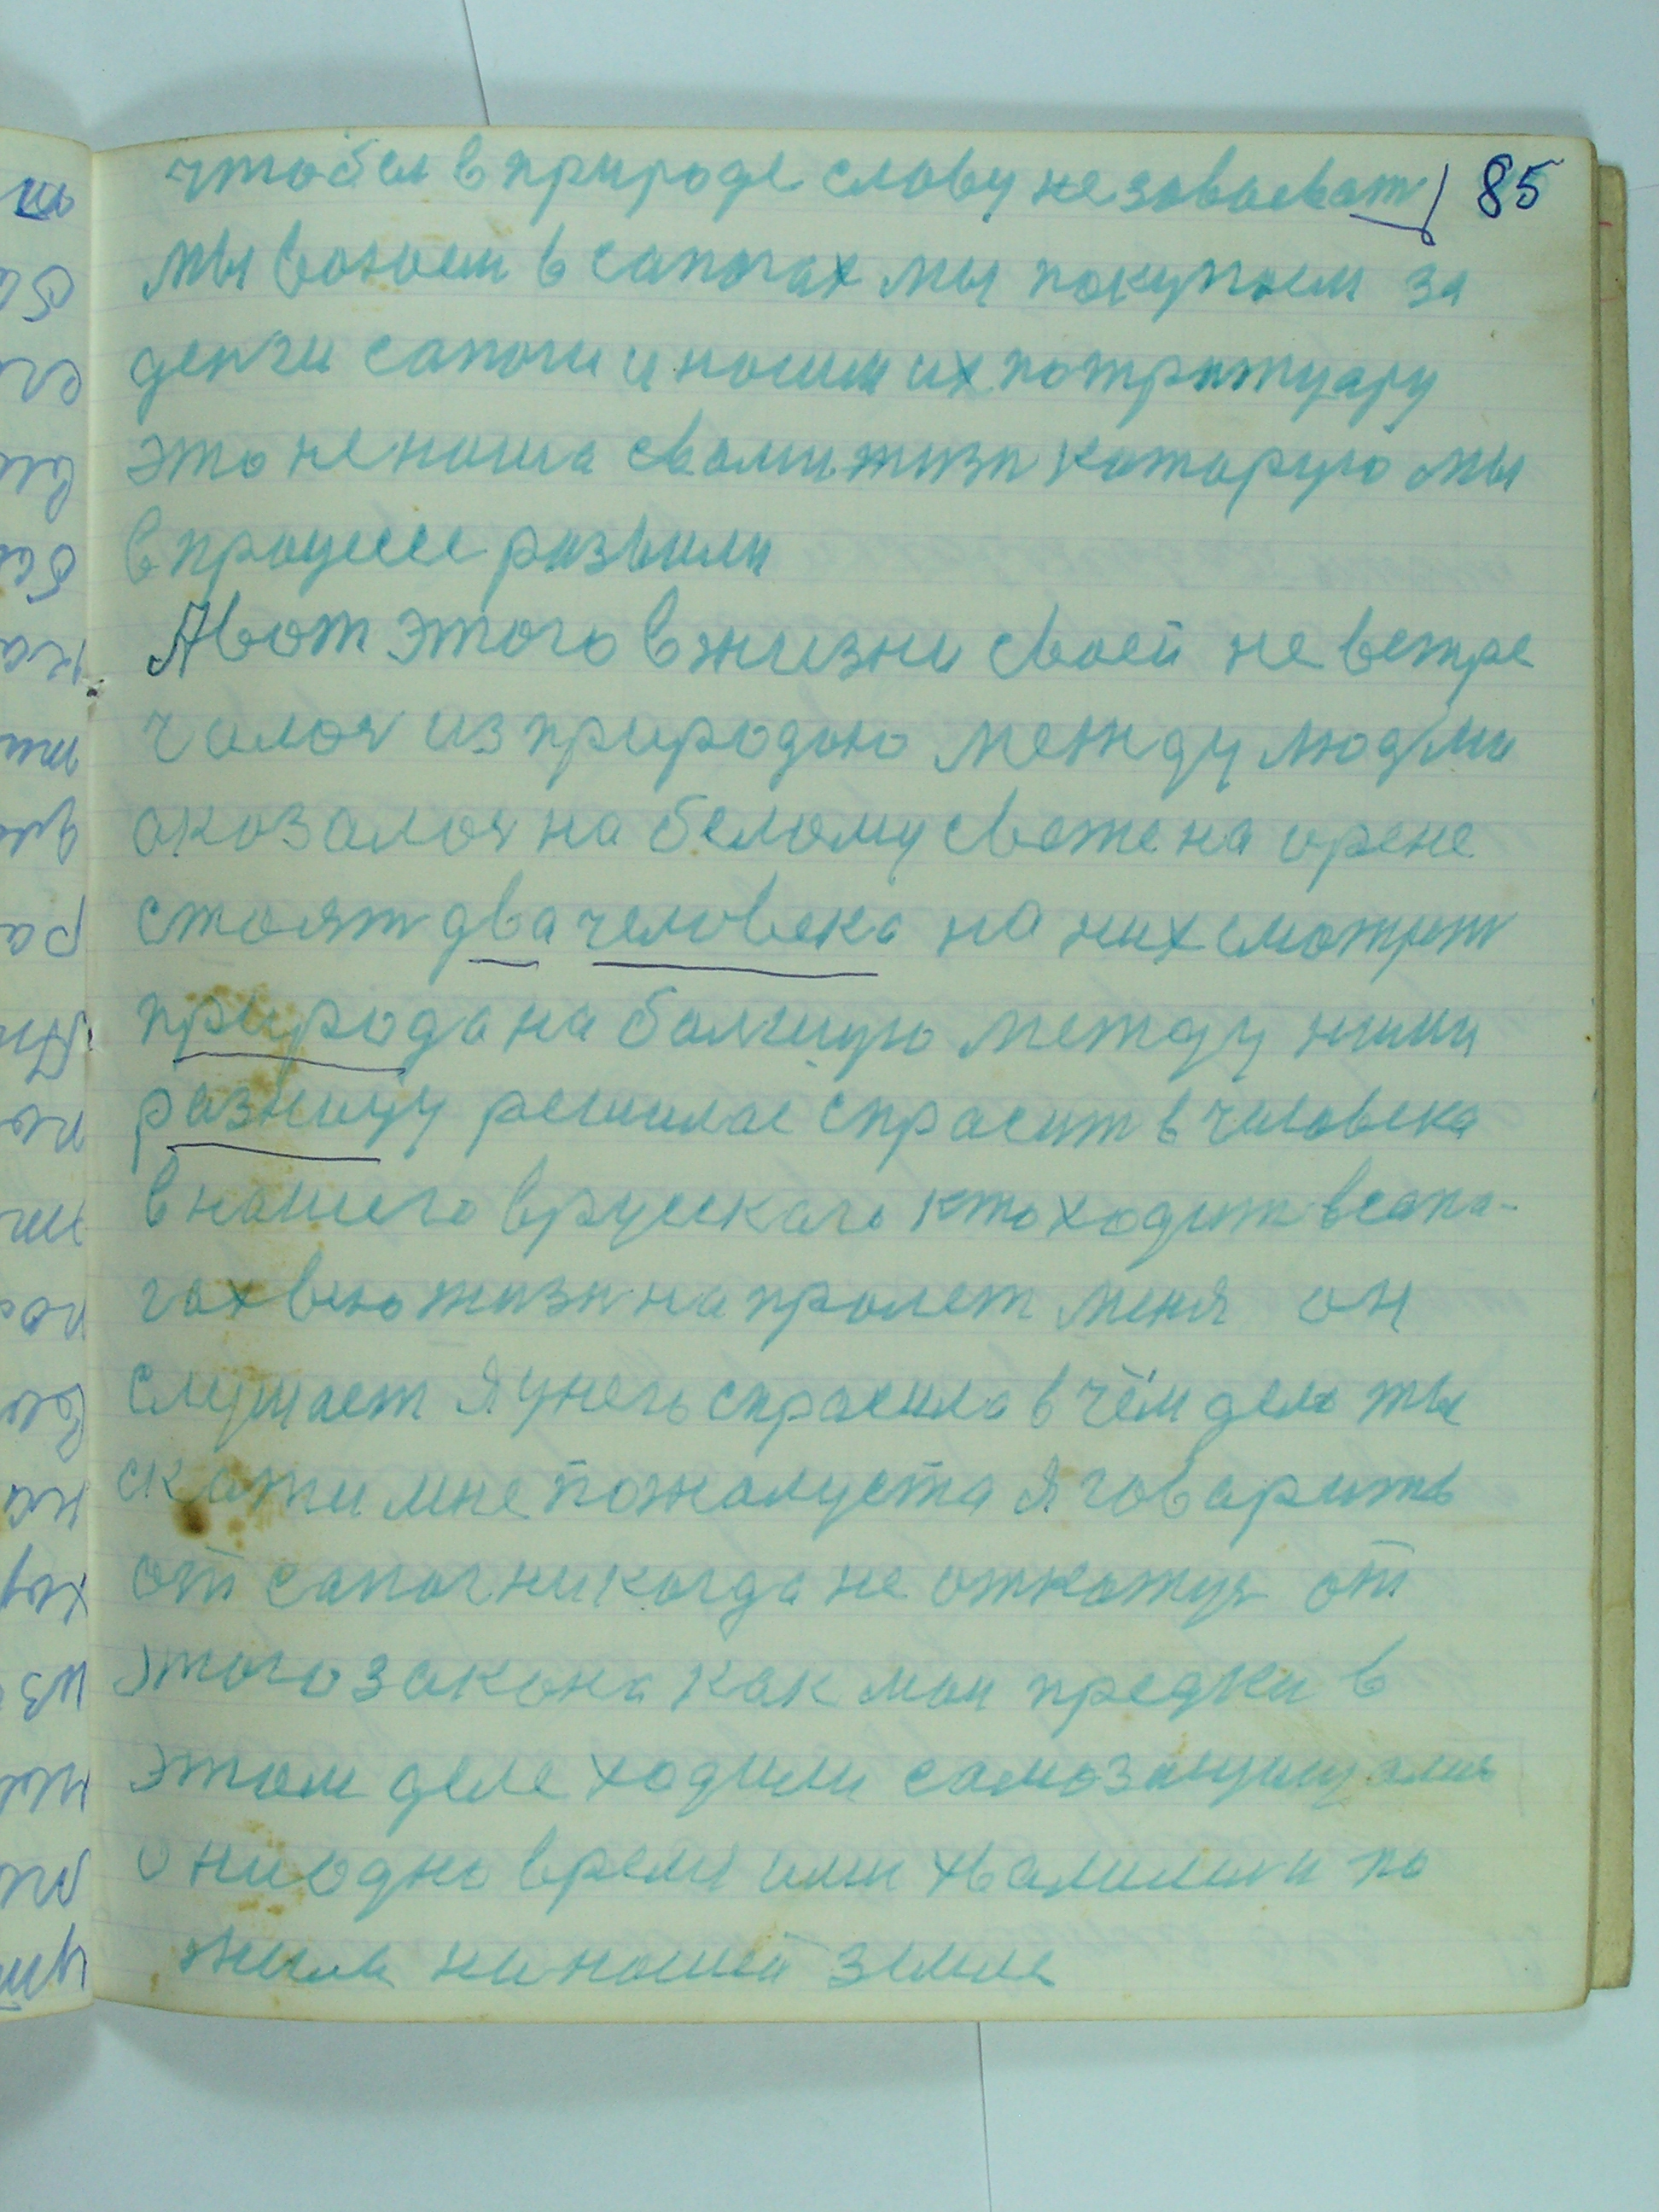 85
чтобы в природе славу не завоеват
мы воюем в сапогах мы покупаем за
денги сапоги и носим их потратуару
это не наша свами жизн которую мы
в процессе развили
А вот этого в жизни своей не встре
чалоя из природою между людми
оказалоя на белому свете на арене
стоят два человека на них смотрит
природа на балшую между ними
разницу решилас спросит в человека
в нашего в русскаго кто ходит в сапо-
гах всю жизн напролет меня он
слушает я унего спросила в чём дело ты
скажи мне пожалуста я говорить
от сапог никогда не откажуя от
этого закона как мои предки в
этом деле ходили самозащищалис
они одно время ими хвалилис и по
жили на нашей земле